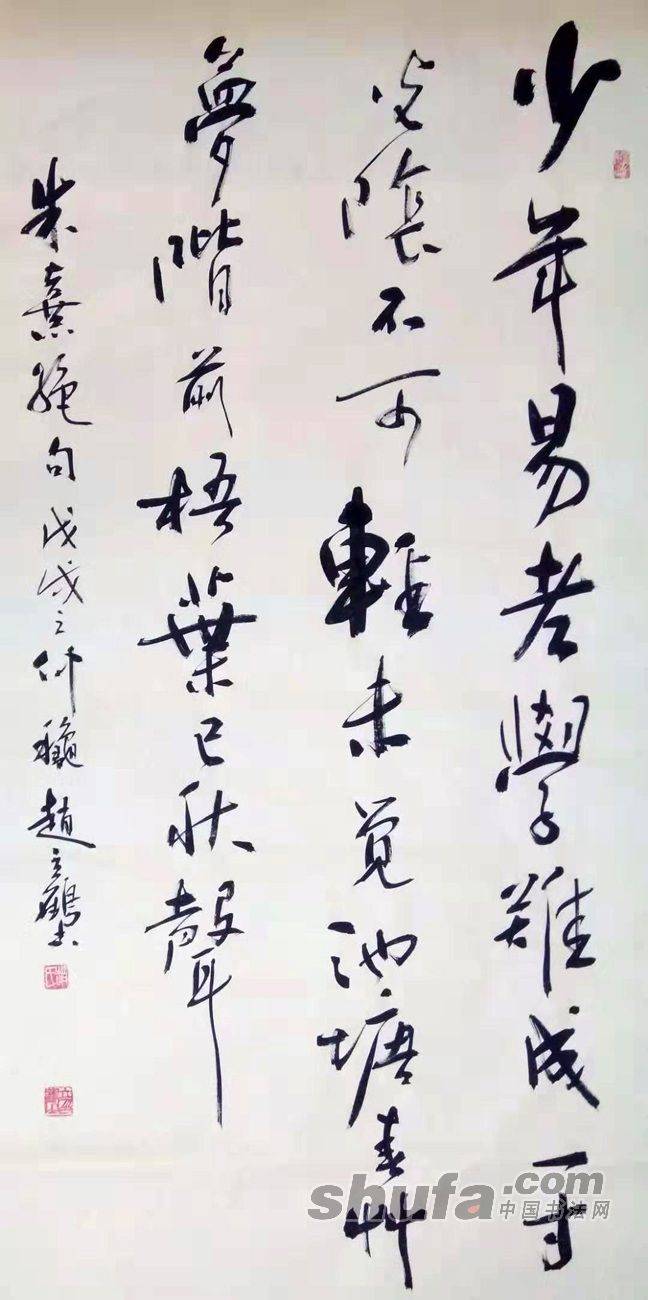 少年易老學難成一寸
光陰不可輕未覺池塘春艸
夢階前梧葉已秋聲
朱熹絕句戊戌之仲龝趙鶴书
shufa.com
中国书法网